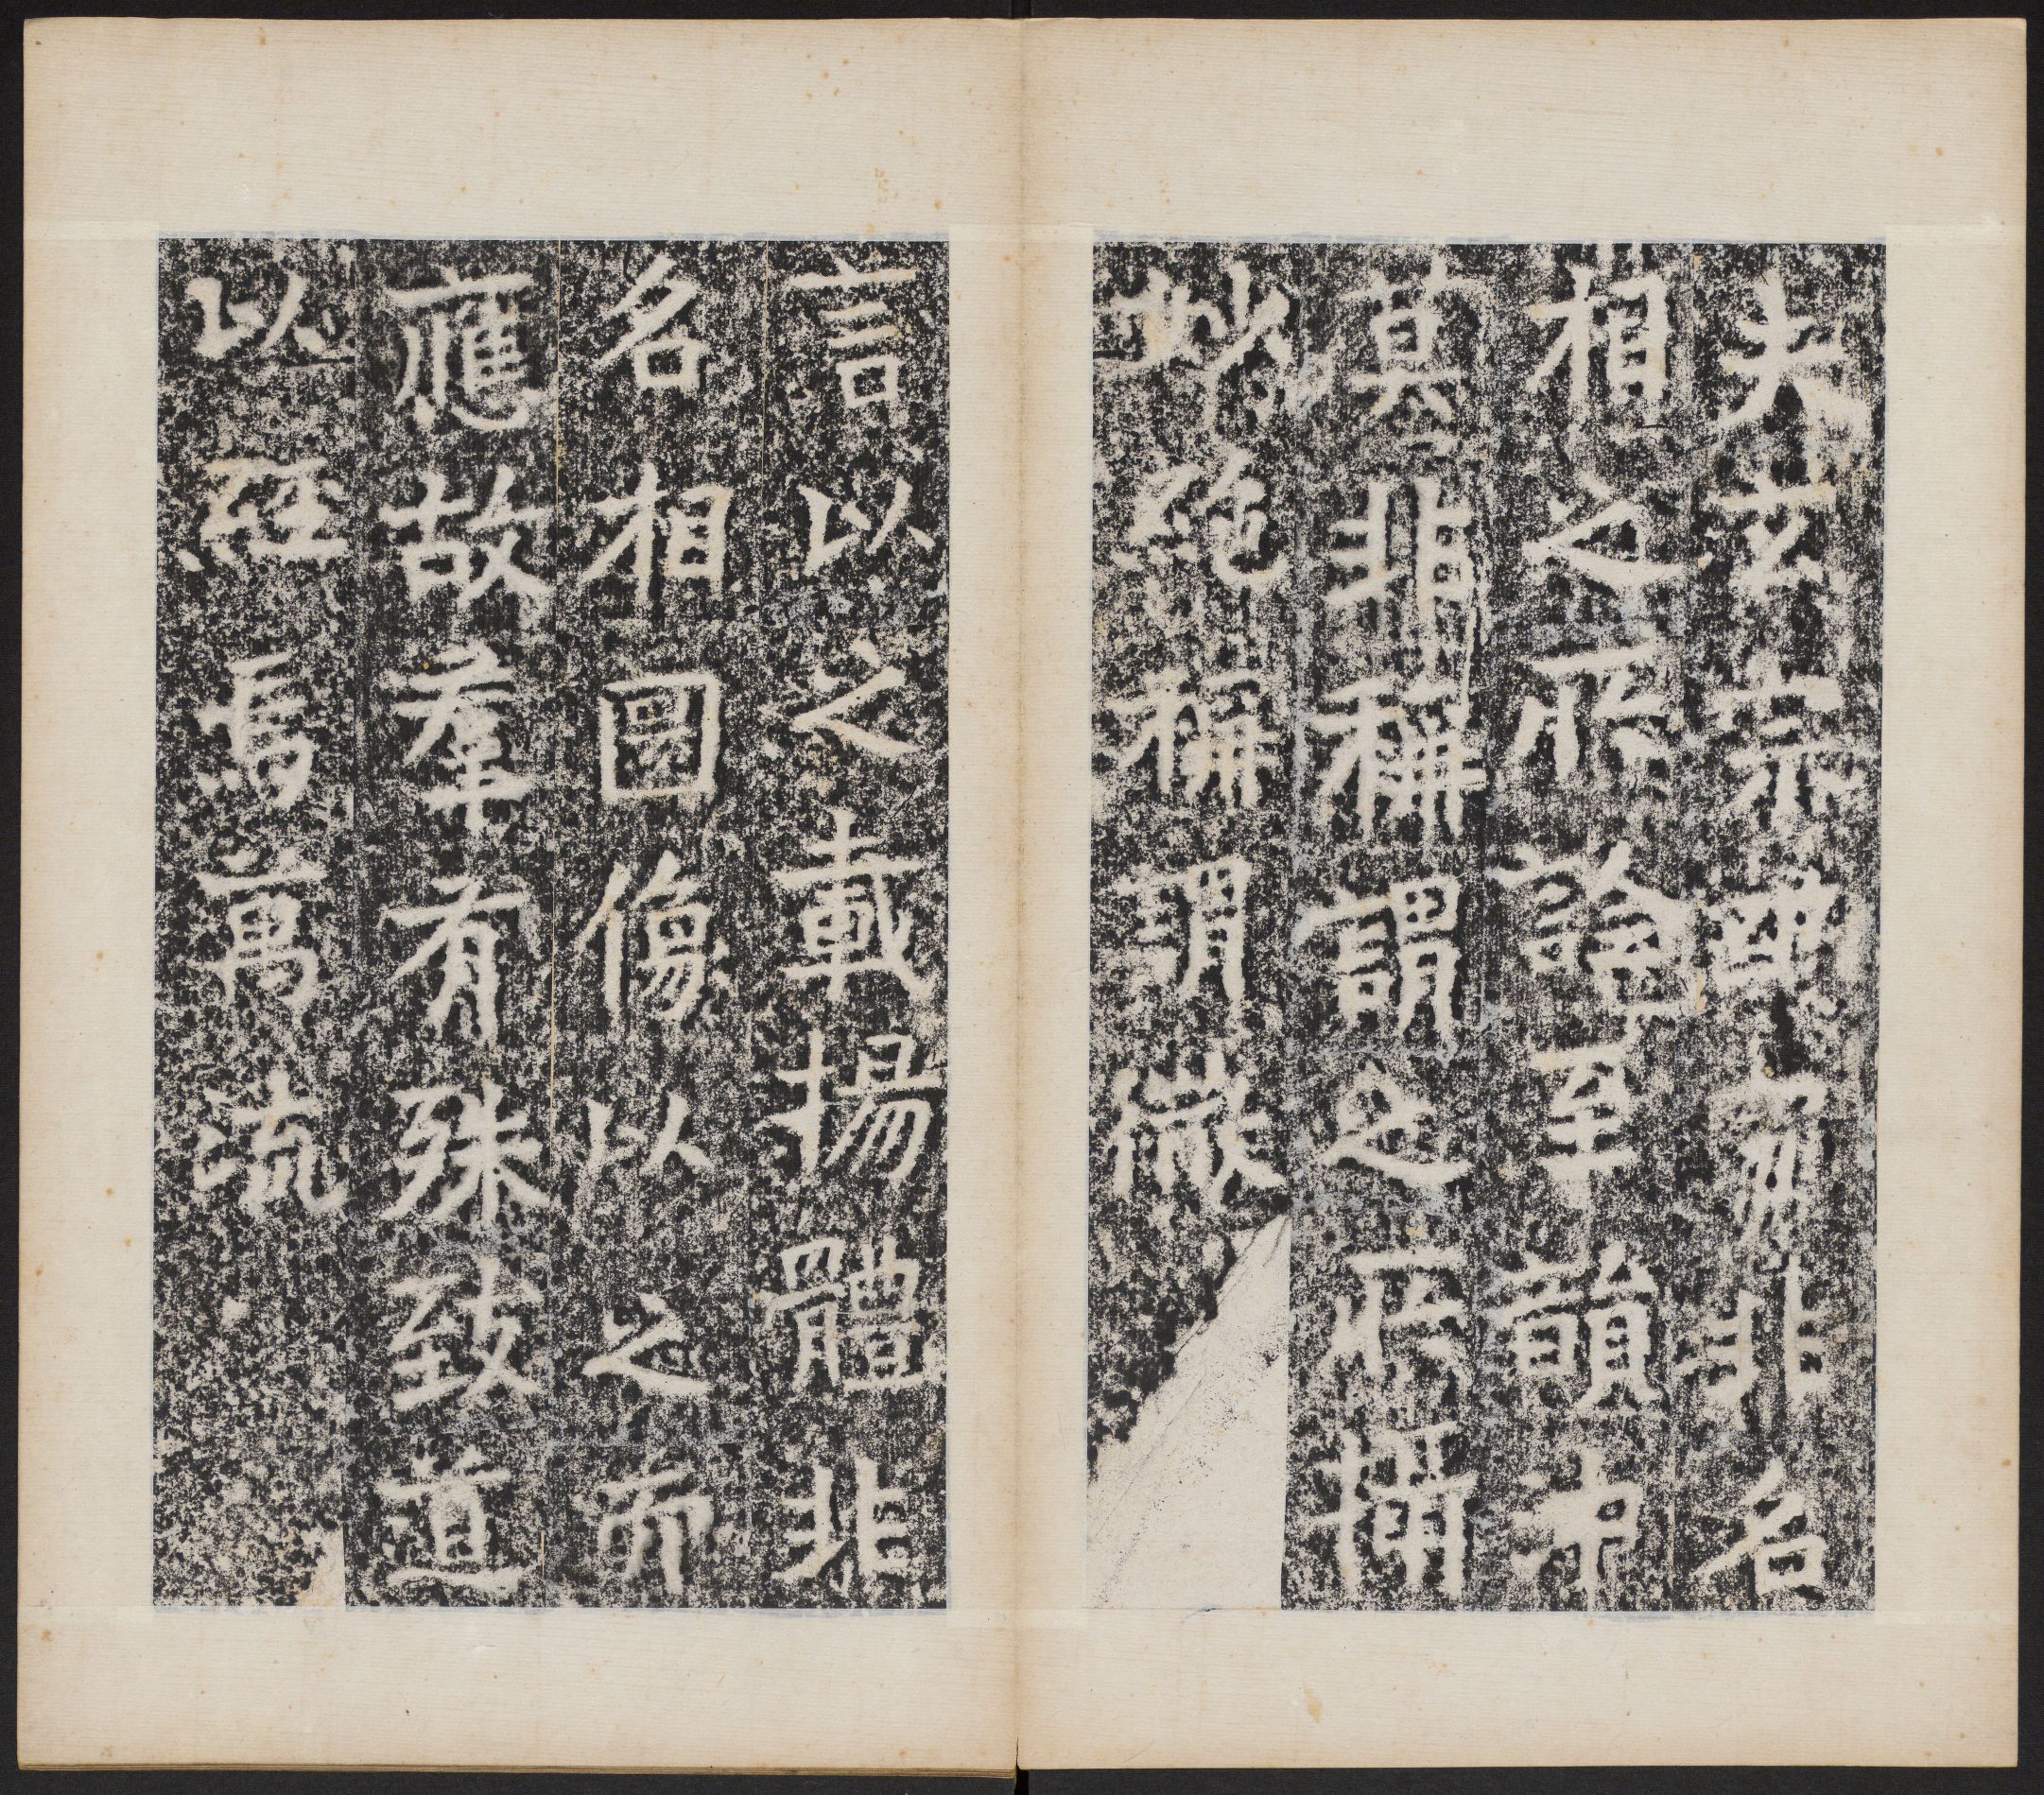 夫玄宗幽寂非名
相之所詮至賾中
冥非稱謂之所搆
妙絕稱謂微
言以之載揚體非
名相圖像以之而
應故羣有殊致道
以經焉萬流